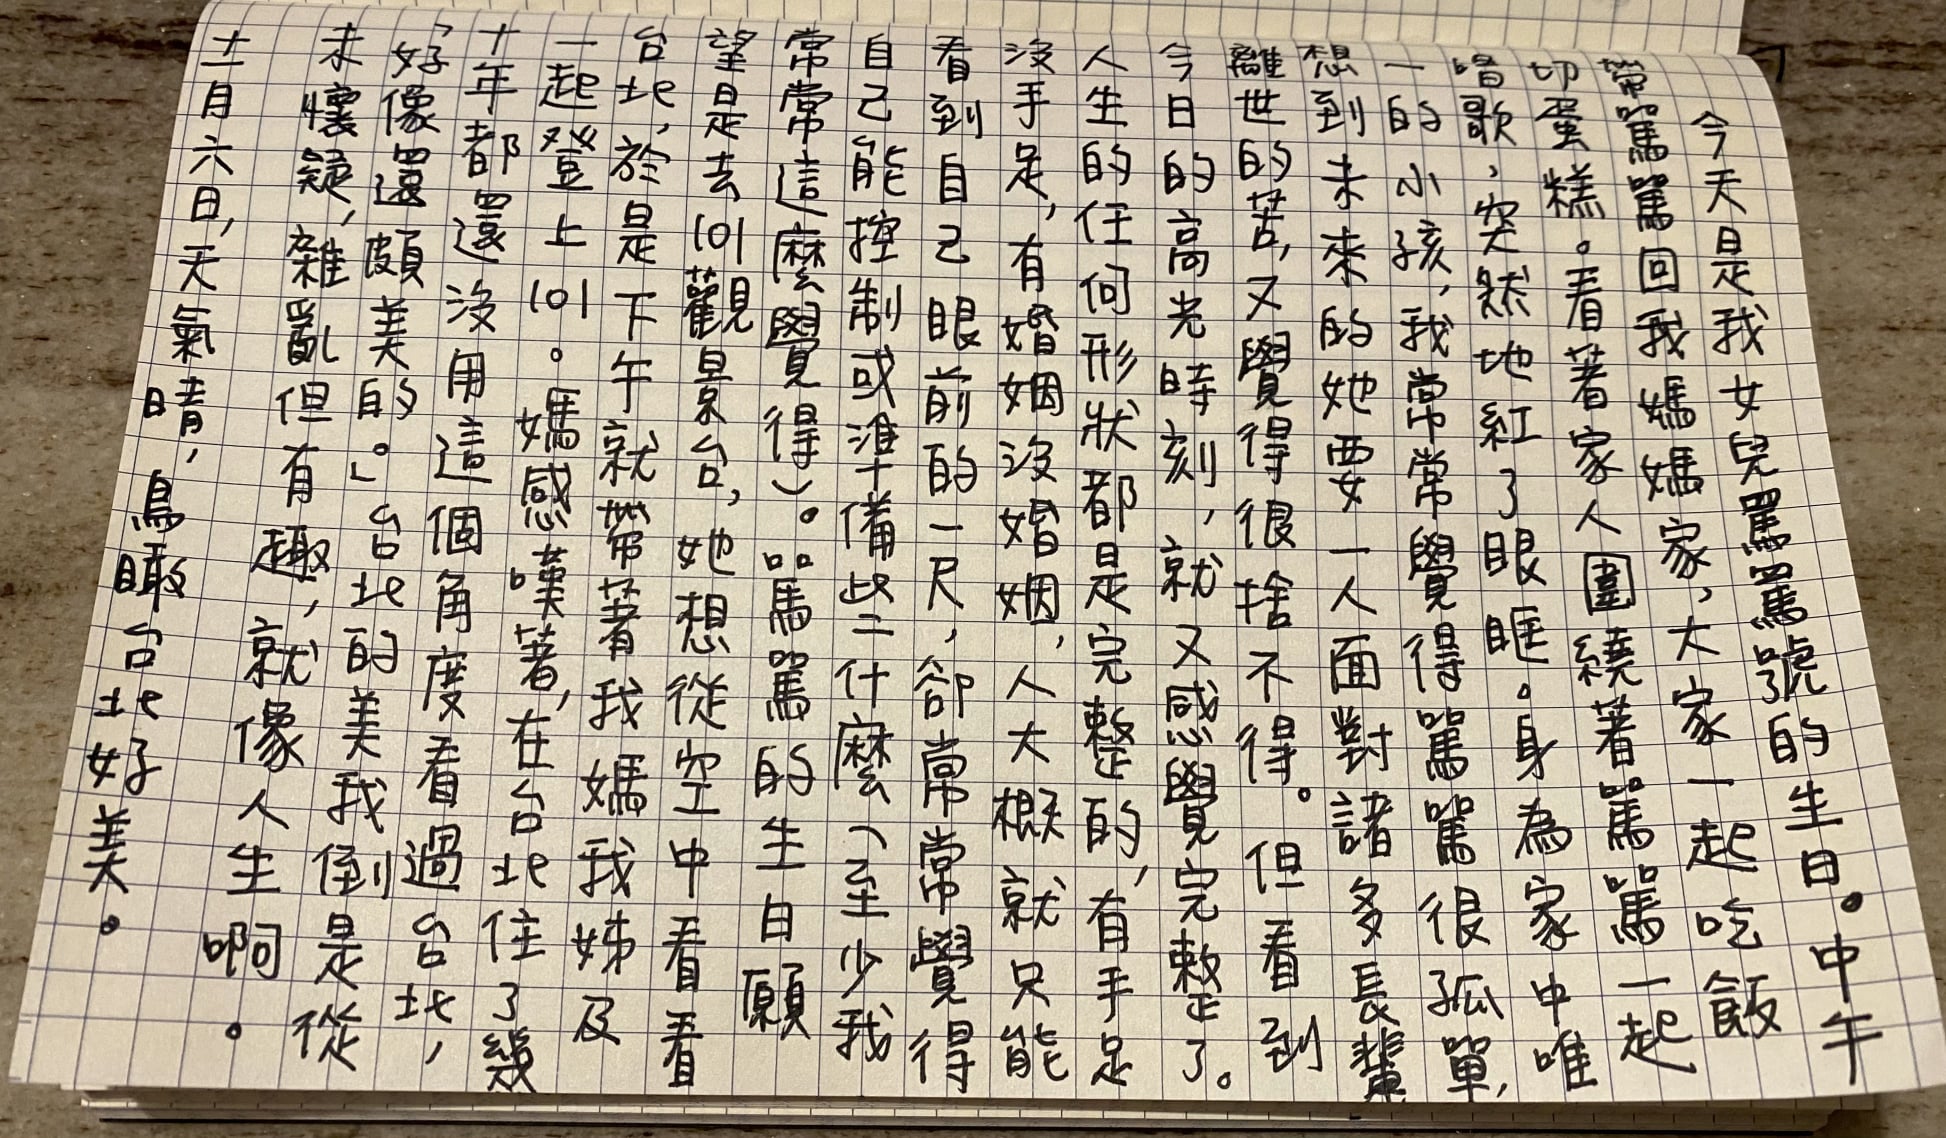 今天是我女兒駡駡號的生日。中午
帶駡駡回我媽媽家，大家一起吃飯
切蛋糕。看著家人圍繞著駡駡一起
唱歌，突然地紅了眼眶。身為家中唯
一的小孩，我常常覺得駡駡很孤單，
想到未來的她要一人面對諸多長輩
離世的苦，又覺得很捨不得。但看到
今日的高光時刻，就又感覺完整了。
人生的任何形狀都是完整的，有手足
沒手足，有婚姻沒婚姻，人大概就只能
看到自己眼前的一尺，卻常常覺得
自己能控制或準備些什麼（至少我
常常這麼覺得）。駡駡的生日願
望是去101觀景台，她想從空中看看
台北，於是下午就帶著我媽我姊及
一起登上101。媽感嘆著，在台北住了幾
十年都還沒用這個角度看過台北，
「好像還頗美的。」台北的美我倒是從
未懷疑，雜亂但有趣，就像人生啊。
十一月六日，天氣晴，鳥瞰台北好美。